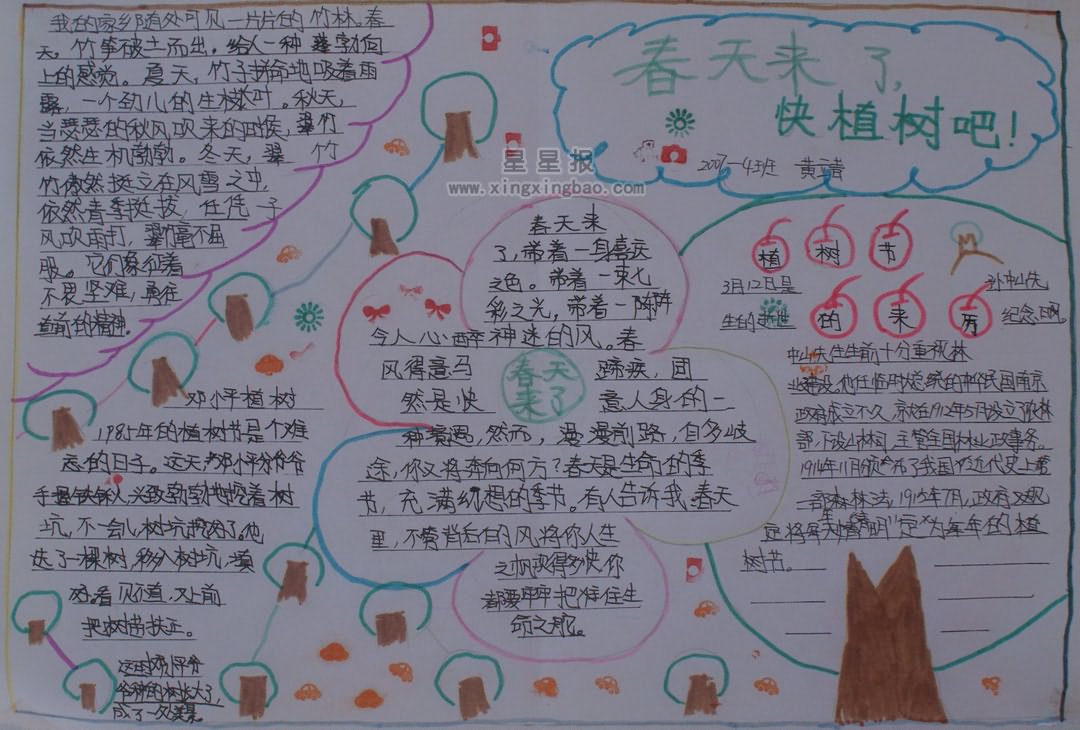 我的家乡随处可见一片片的竹林。春
天，竹笋破土而出。给人一种 蓬勃向
上的感觉。夏天，竹子拼命地吸着雨
露，一个幼儿的生
当瑟瑟的秋风吹来的时候，翠竹
依然生机勃勃。冬天，翠 竹
竹傲然挺立在风雪之中，
依然青季挺拔，任凭
风吹雨打，翠竹毫不屈
服。它们象征着
不畏坚难，勇往
直前的精神。
春天来了，
快植树吧！
星星报
www.xingxingbao.com
邓小平植树
1985年的植树节是个难
忘的日子。这天，邓小平爷爷
手握铁锹，兴致勃勃地挖着树
坑，不一会儿树坑挖好了。他
达了一棵树，移入树坑，填
好。看见不直，又上前
把树苗扶正。
这时邓小平爷
爷种的树长大了，
成了一处美景。
春天来
了，带着一身喜庆
之色。带着一束七
彩之光，带着一阵阵
令人心醉神迷的风。春
风得意马 蹄疾，团
然是快 意人身的一
春天
来了
种境遇，然而，漫漫前路，自多歧
途，你又将奔向何方？春天是生命的季
节，充满幻想的季节。有人告诉我：春天
里，不管背后的风将你人生
之帆吹得多快，你
都要牢牢把准住生
命之舵。
植 树 节
的 来 历
3月12日是 孙中山先
生的逝世 纪念日。
中山先生生前十分重视林
业建设。他任临时大总统的中华民国南京
政府成立不久，就在1912年5月设立了农林
部，下设山林司，主管全国林业行政事务。
1914年11月颁布了我国近代史上第
一部森林法，1915年7月，政府又规
定将每年"清明"定为每年的植
树节。